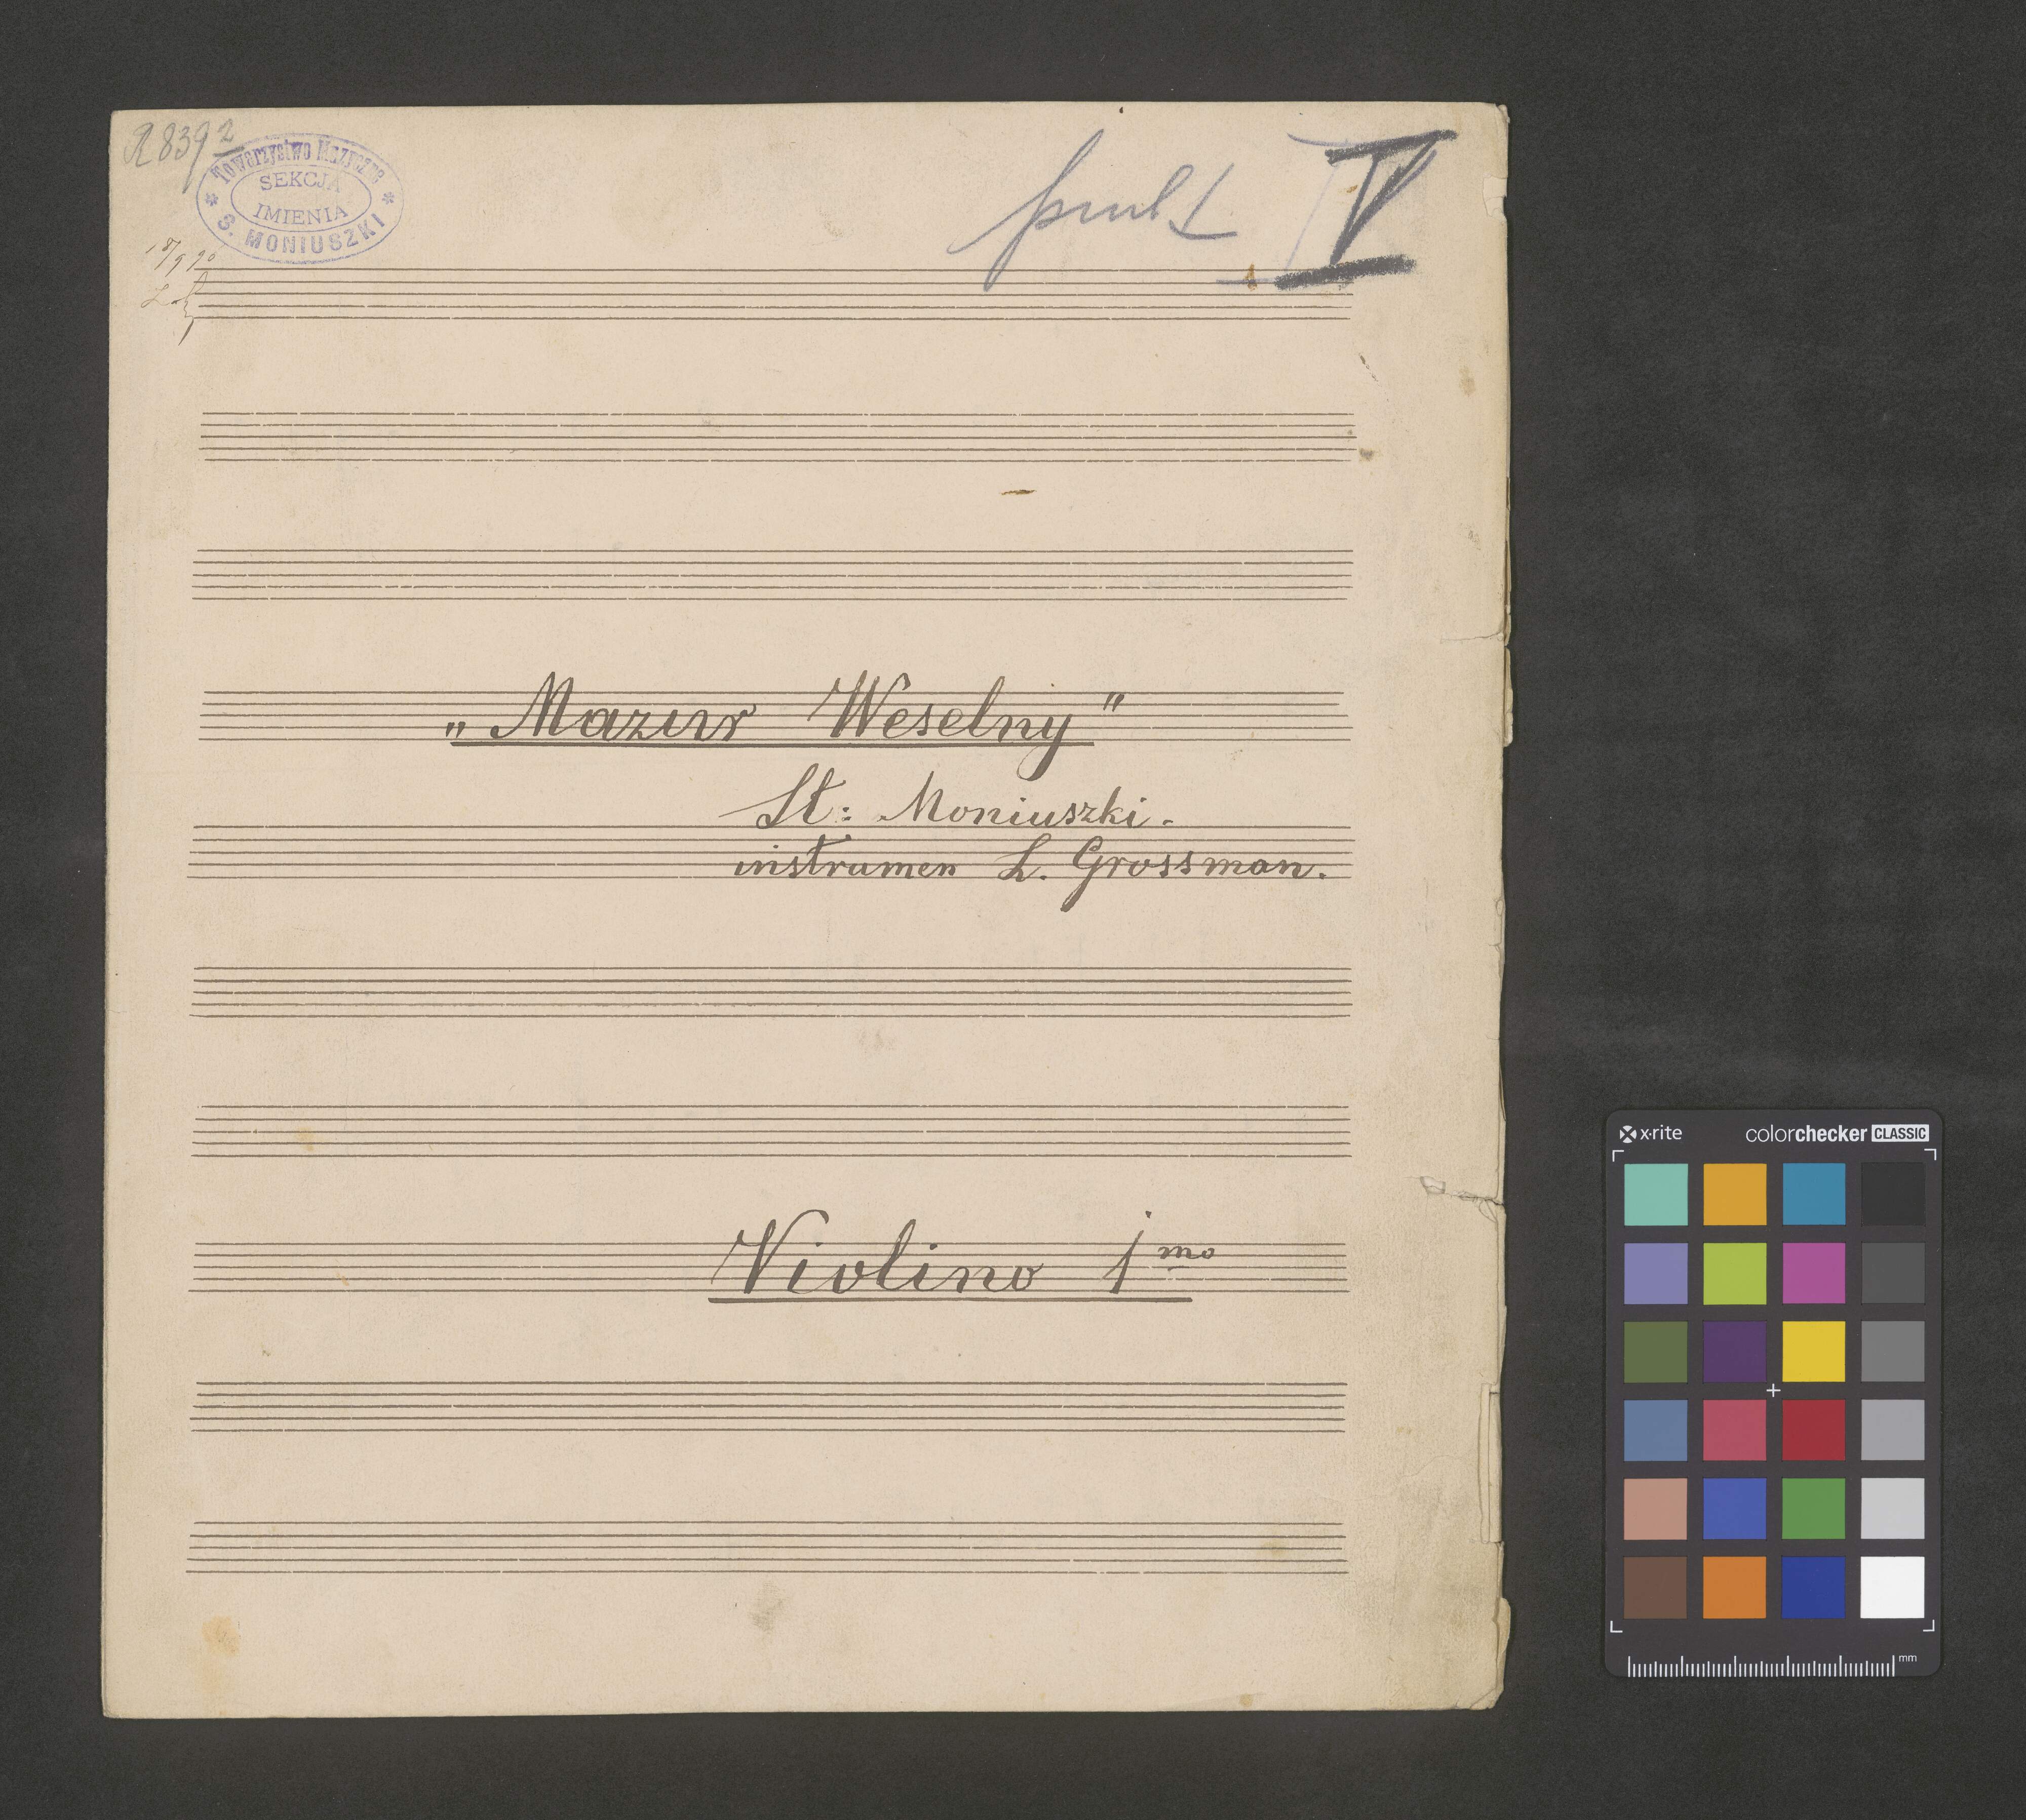 R 8392
Towarzystwo Muzyczne
SEKCJA
IMIENIA
S. MONIUSZKI
pult V
„Mazur Weselny"
St: Moniuszki.
instrumen L. Grossman.
Violino 1mo
x·rite colorchecker CLASSIC
mm